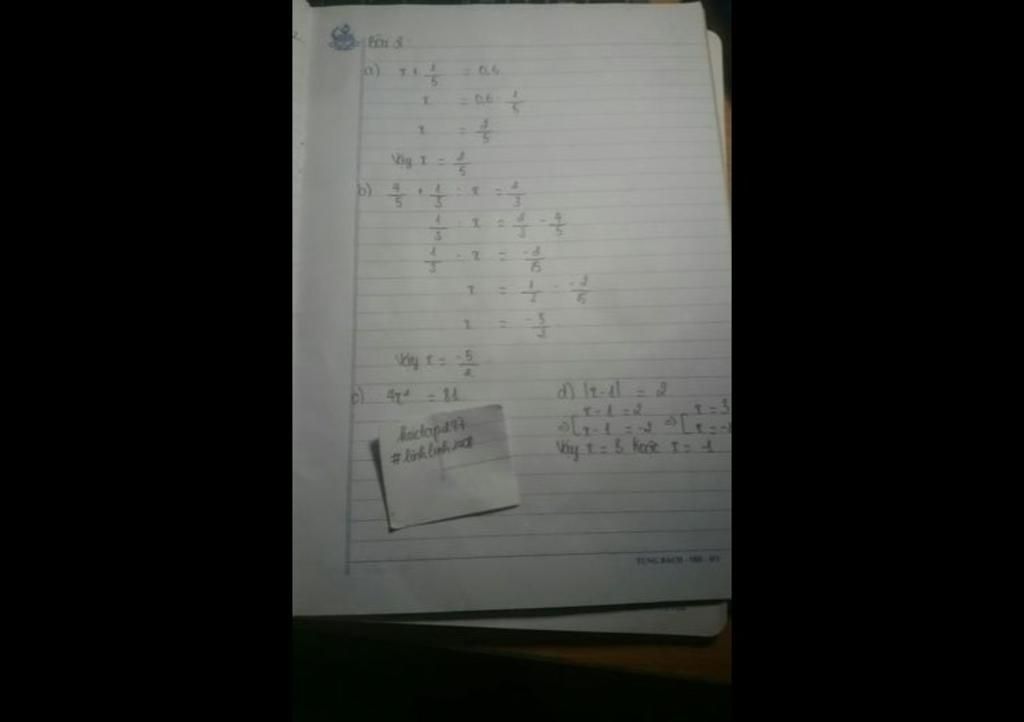 Bài 2
a) x + 1/5 = 0,6
x = 0,6 - 1/5
x = 2/5
Vậy x = 2/5
b) 4/5 + 1/3 : x = 2/3
1/3 : x = 2/3 - 4/5
1/3 : x = -2/15
x = 1/3 :
x = -5/2
Vậy x = -5/2
c) = 81
d) |x-1| = 2
=> [ x-1 = 2 x = 3
x-1 = -2 => [ x = -1
Vậy x = 3 hoặc x = -1
hoidap247